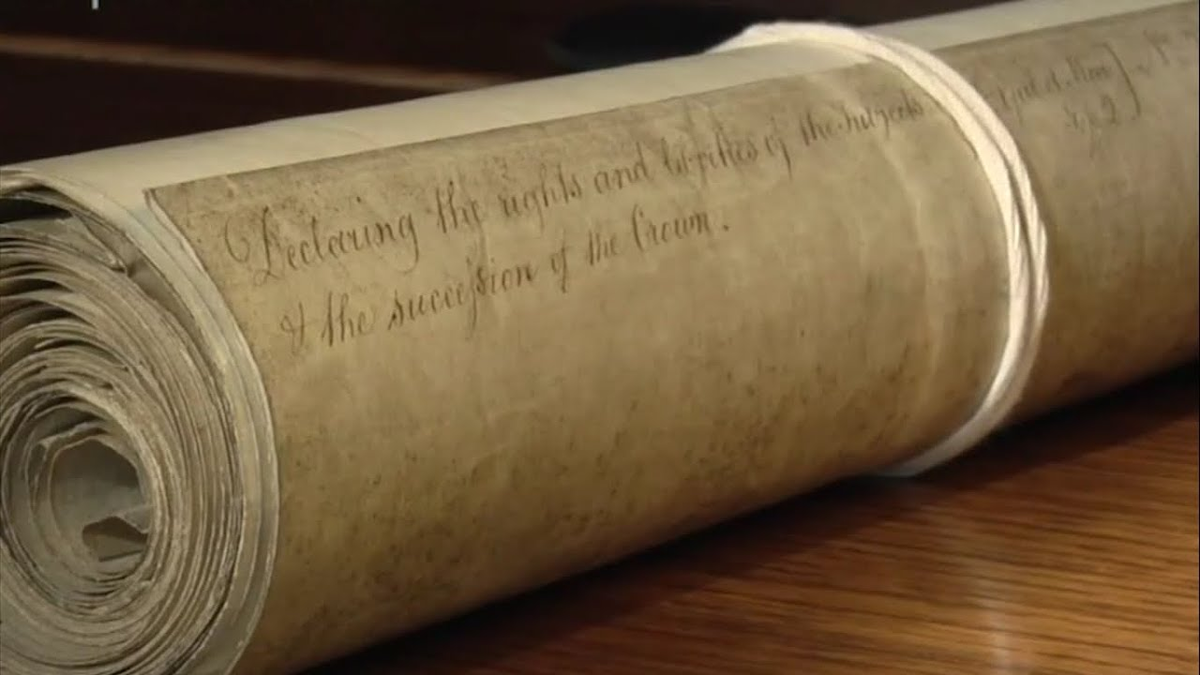 Declaring the rights and liberties of the Subjects
& the succession of the Crown.